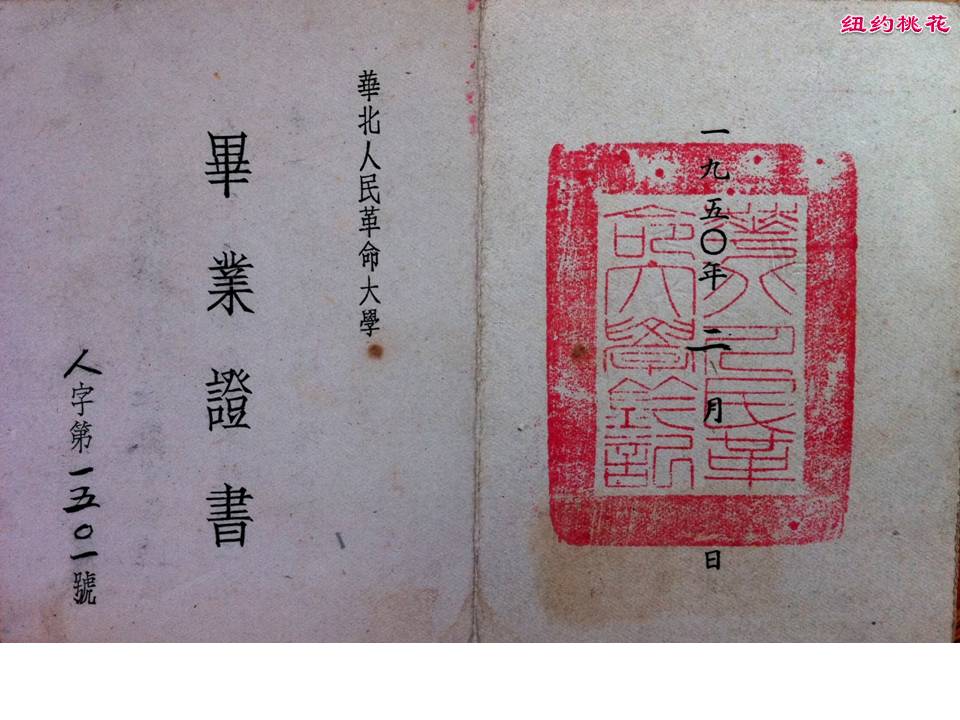 纽约桃花
華北人民革命大學
畢業證書
人字第一五〇一號
一九五〇年二月 日
華北人民革
命大學鈐記